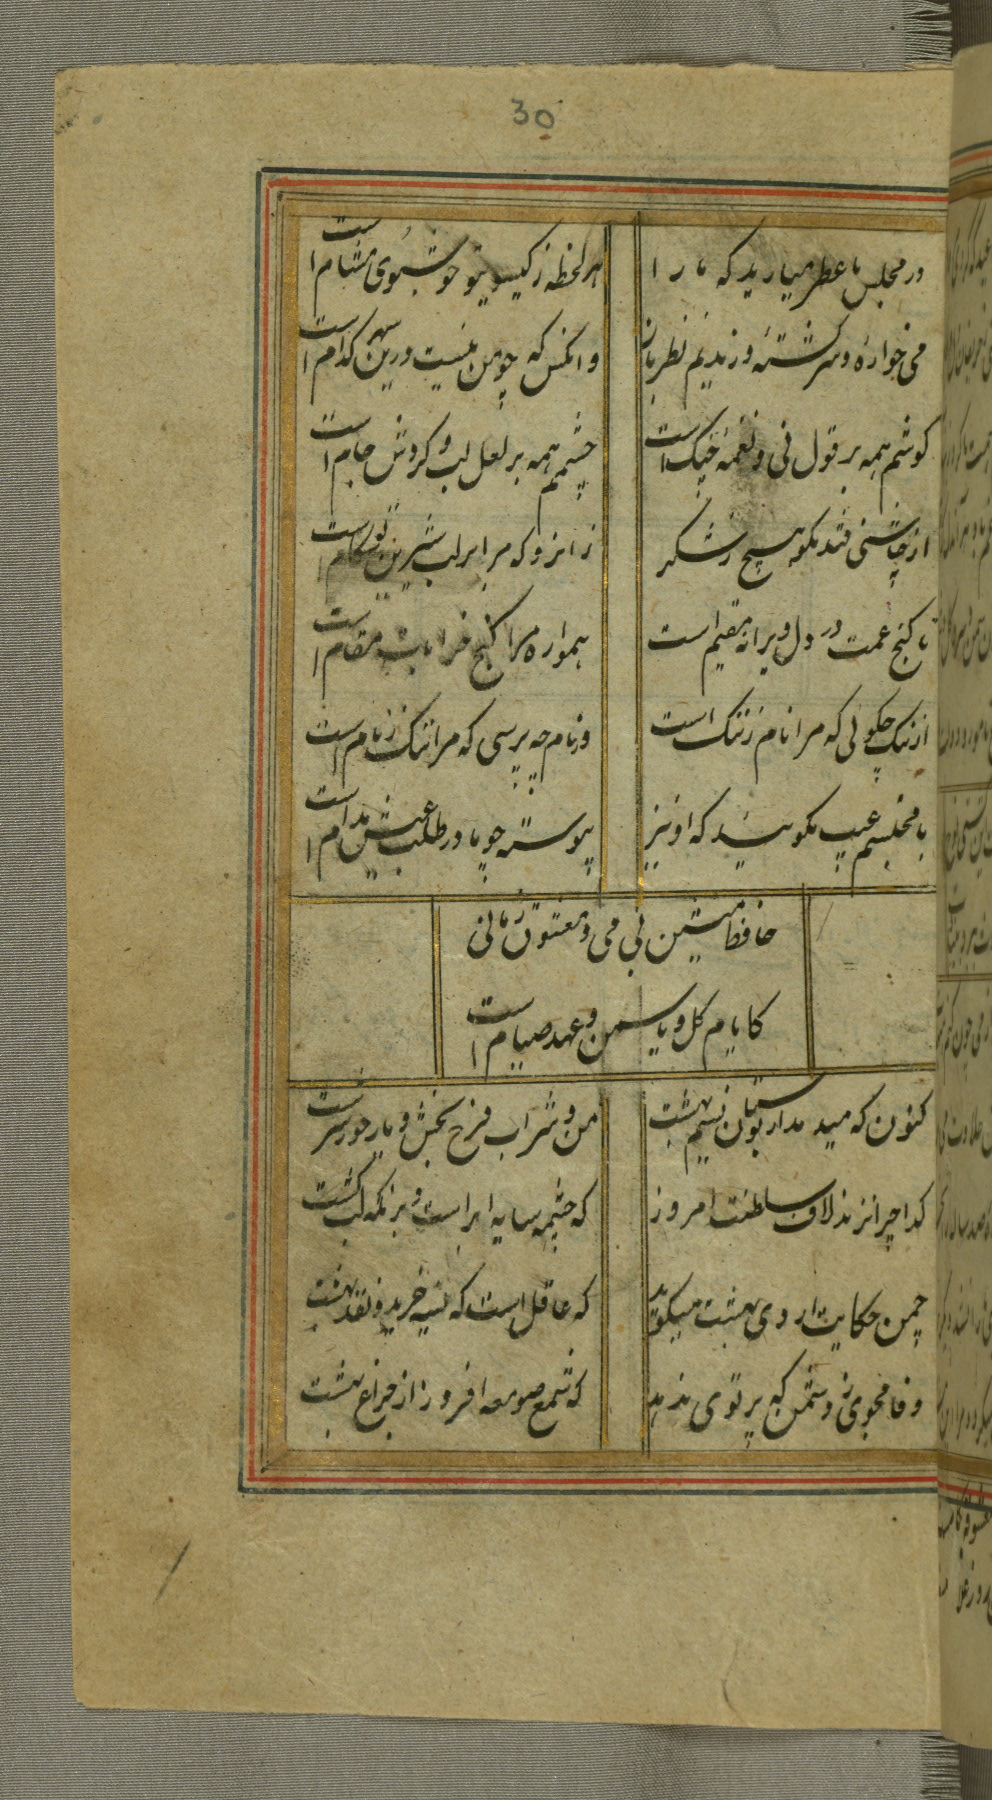 30
در مجلس ما عطر میارید که ما را
هر لحظه ز گیسوی تو خوشبوی مشام است
می خواره و سرگشته و رندیم نظرباز
وانکس که چو من نیست درین شهر کدام است
گوشم همه بر قول نی و نغمه چنگ است
چشمم همه بر لعل لب و گردش جام است
از چاشنی قند مگو هیچ ز شکر
زانرو که مرا بر لب شیرین تو کام است
تا گنج غمت در دل ویرانه مقیم است
همواره مرا کنج خرابات مقام است
از ننگ چگوئی که مرا نام ز ننگ است
وز نام چه پرسی که مرا ننگ ز نام است
با محتسبم عیب مگوئید که او نیز
پیوسته چو ما در طلب عیش مدام است
حافظ منشین بی می و معشوق زمانی
کایام گل و یاسمن و عهد صیام است
کنون که میدمد از بوستان نسیم بهشت
من و شراب فرح بخش و یار حور سرشت
گدا چرا نزند لاف سلطنت امروز
که خیمه سایه ابر است و بزمگه لب کشت
چمن حکایت اردی بهشت میگوید
نه عاقل است که نسیه خرید و نقد بهشت
وفا مجوی ز دشمن که پرتوی ندهد
که شمع صومعه افروز از چراغ کنشت